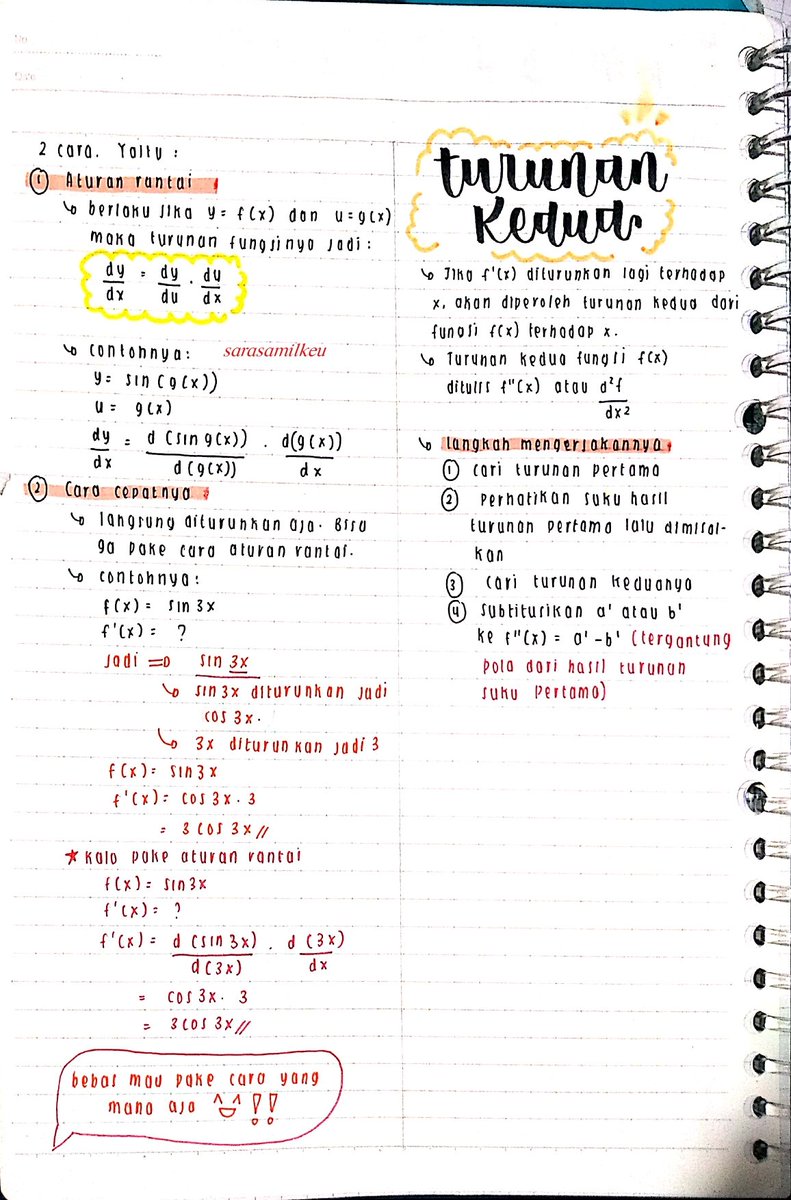 No
Date
2 cara. Yaitu :
① Aturan rantai !
↳ berlaku jika y = f(x) dan u = g(x)
maka turunan fungsinya jadi :
dy/dx = dy/du · du/dx
↳ contohnya :
sarasamilkeu
y = sin (g(x))
u = g(x)
dy/dx = d (sin g(x))/d (g(x)) . d(g(x))/dx
② Cara cepatnya !
↳ langsung diturunkan aja. Bisa
ga pake cara aturan rantai.
↳ contohnya :
f(x) = sin 3x
f'(x) = ?
Jadi => sin 3x
↳ sin 3x diturunkan jadi
cos 3x.
↳ 3x diturunkan jadi 3
f(x) = sin 3x
f'(x) = cos 3x . 3
= 3 cos 3x //
★ Kalo pake aturan rantai
f(x) = sin 3x
f'(x) = ?
f'(x) = d (sin 3x)/d (3x) . d (3x)/dx
= cos 3x . 3
= 3 cos 3x //
bebas mau pake cara yang
mana aja ^▽^ !!
turunan
Kedua
↳ Jika f'(x) diturunkan lagi terhadap
x, akan diperoleh turunan kedua dari
fungsi f(x) terhadap x.
↳ Turunan kedua fungsi f(x)
ditulis f"(x) atau d²f/dx²
↳ langkah mengerjakannya !
① cari turunan pertama
② perhatikan suku hasil
turunan pertama lalu dimisal-
kan
③ cari turunan keduanya
④ subtitusikan a' atau b'
ke f"(x) = a' - b' (tergantung
pola dari hasil turunan
suku pertama)